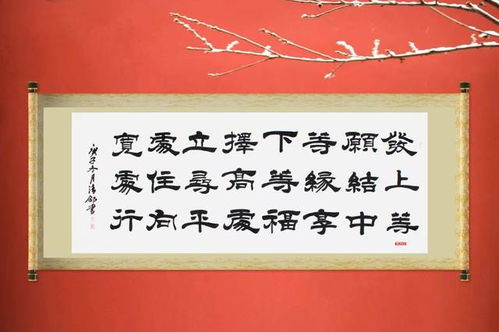 發上等
願結中
等緣享
下等福
擇高處
立尋平
處住向
寬處行
庚子冬月書